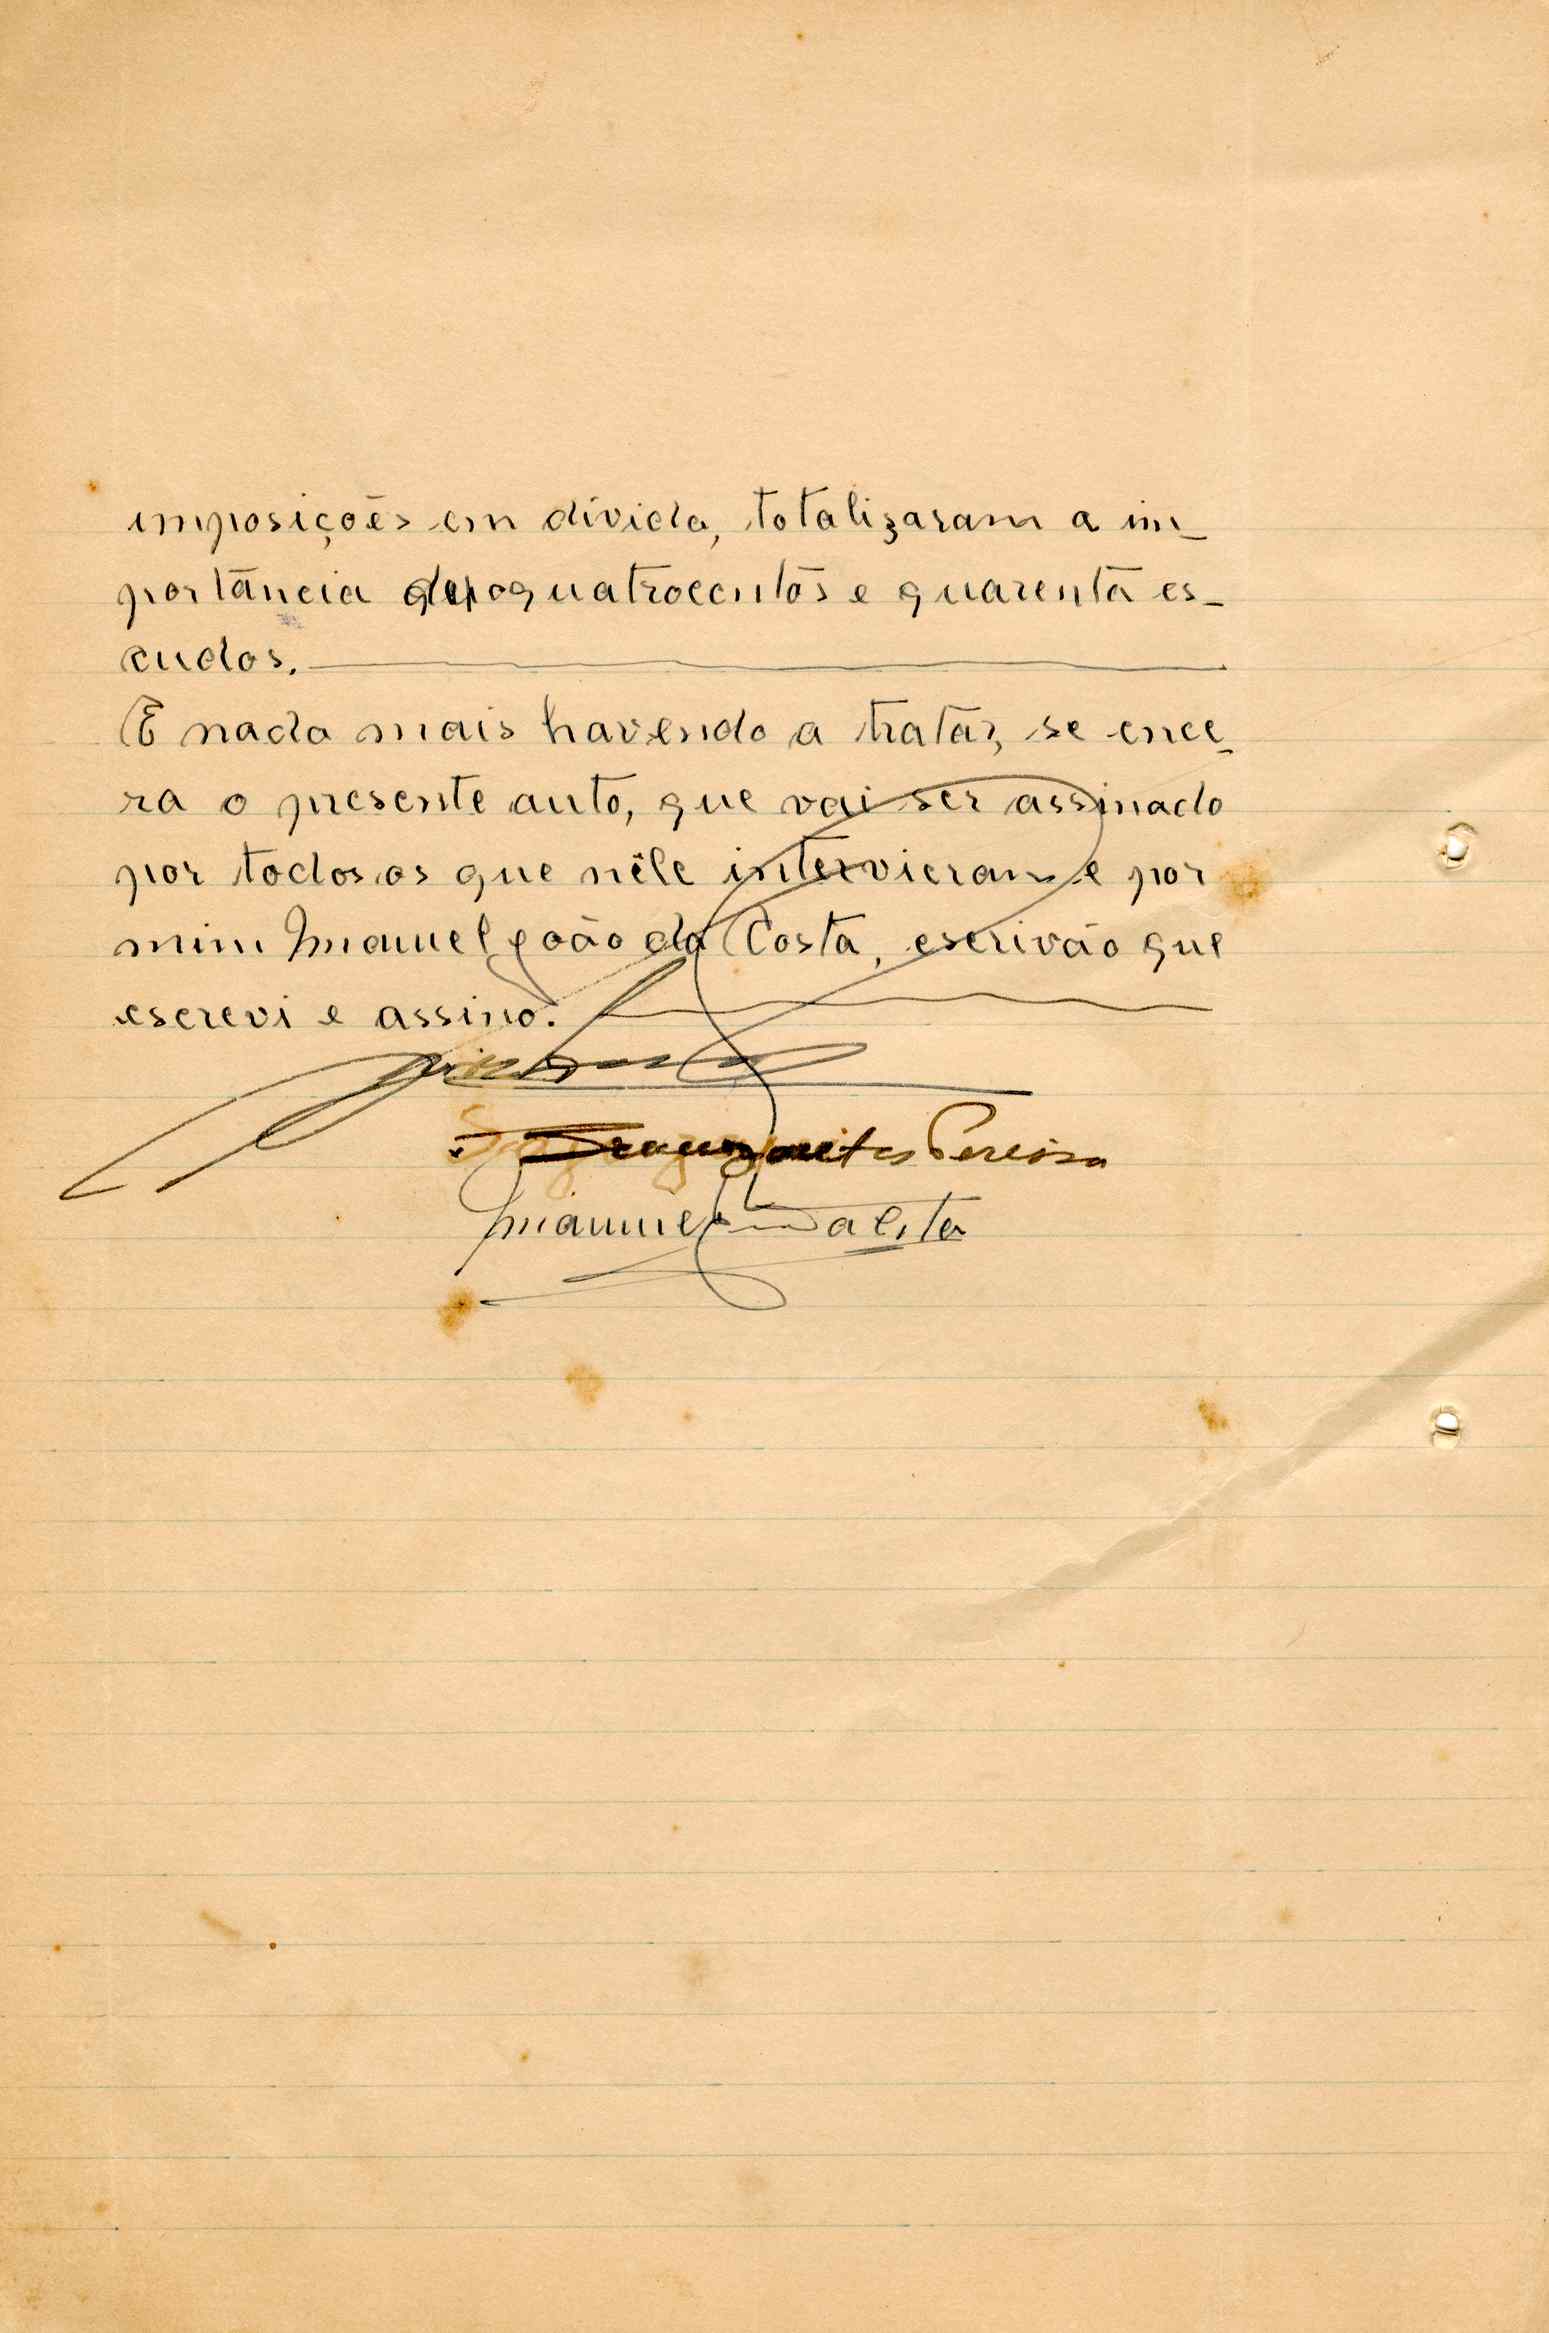 imposições em dívida, totalizaram a im-
portância de quatrocentos e quarenta es-
cudos.
E nada mais havendo a tratar, se ence-
ra o presente auto, que vai ser assinado
por todos os que nêle intervieram e por
mim Manuel João da Costa, escrivão que
escrevi e assino.
Pereira
Manuel